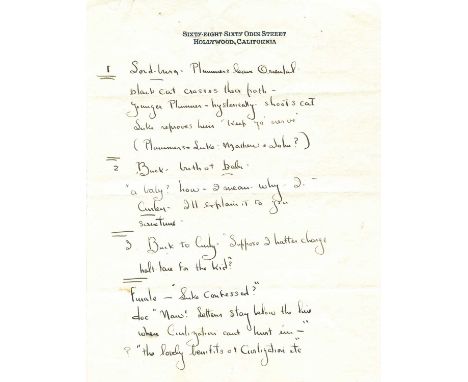 SIXTY-EIGHT SIXTY ODIN STREET
HOLLYWOOD, CALIFORNIA
1 Lordsburg - Plummers leave Oriental
black cat crosses their path -
younger Plummer - hysterically shoots cat
Luke reproves him "Keep yo' nerve"
(Plummers - Luke - Mathew + John?)
2 Buck - birth of baby
"a baby? how - I mean - why - I -
Curley - I'll explain it to you
sometime
3 Buck to Curly "Suppose I hatter charge
half fare for the kid?"
Finale - "Luke confessed?"
doc "Naw! Letters stay below the line
where Civilization cant hurt em -"
? "the lovely benifits of Civilization etc"